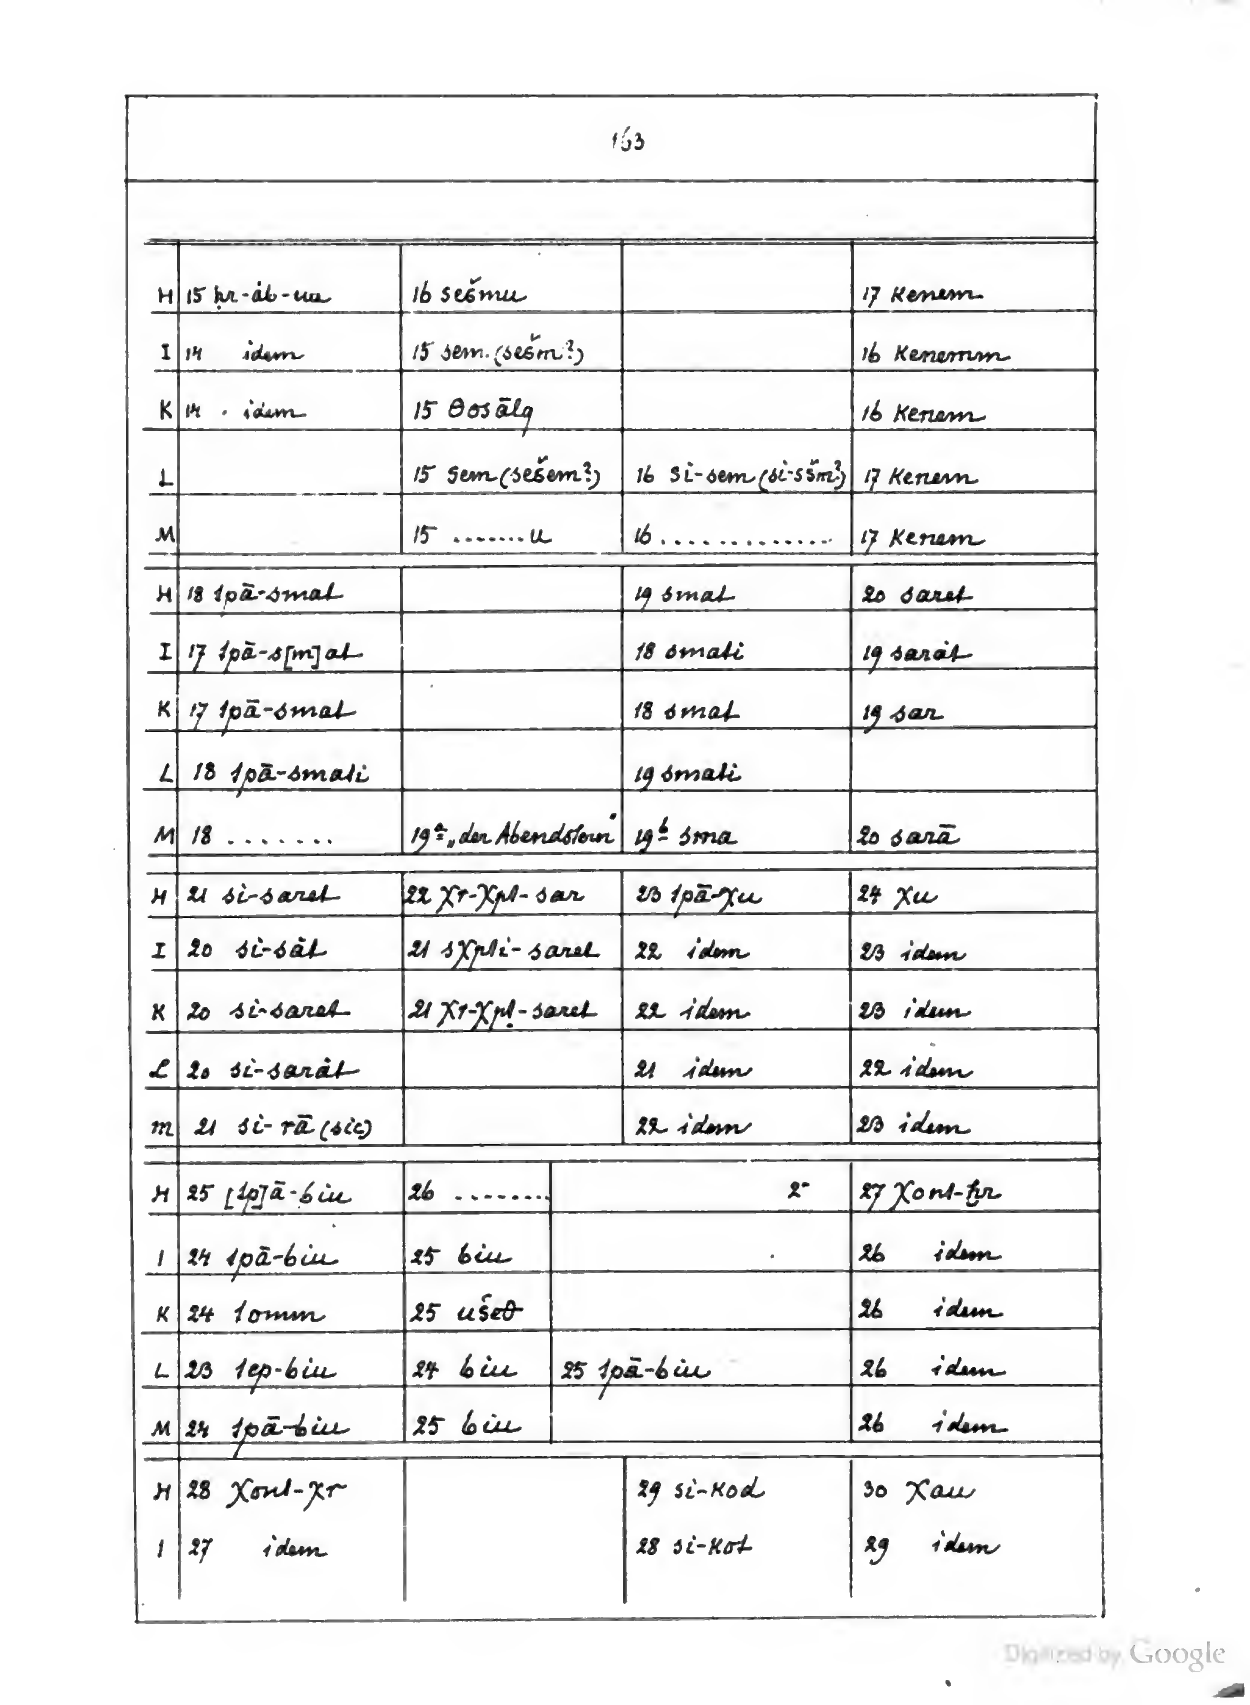 163
H 15 ḥr-áb-ua 16 sešmu 17 Kenem
I 14 idem 15 sem.(sešm?) 16 Kenemm
K 14 . idem 15 θosālq 16 Kenem
L 15 sem(sešem?) 16 si-sem(si-sšm?) 17 Kenem
M 15 .......u 16.............. 17 Kenem
H 18 tpā-smat 19 smat 20 saret
I 17 tpā-s[m]at 18 smati 19 saràt
K 17 tpā-smat 18 smat 19 sar
L 18 tpā-smati 19 smati
M 18 ....... 19a „der Abendstern" 19b sma 20 sarā
H 21 si-saret 22 χr-χpt-sar 23 tpā-χu 24 χu
I 20 si-sàt 21 sχpti-saret 22 idem 23 idem
K 20 si-saret 21 χr-χpṭ-saret 22 idem 23 idem
L 20 si-saràt 21 idem 22 idem
m 21 si-rā (sic) 22 idem 23 idem
H 25 [tp]ā-biu 26 ....... 2- 27 χont-ḥr
I 24 tpā-biu 25 biu 26 idem
K 24 tomm 25 ušeθ 26 idem
L 23 tep-biu 24 biu 25 tpā-biu 26 idem
M 24 tpā-biu 25 biu 26 idem
H 28 χont-χr 29 si-Kod 30 χau
I 27 idem 28 si-Kot 29 idem
Digitized by Google